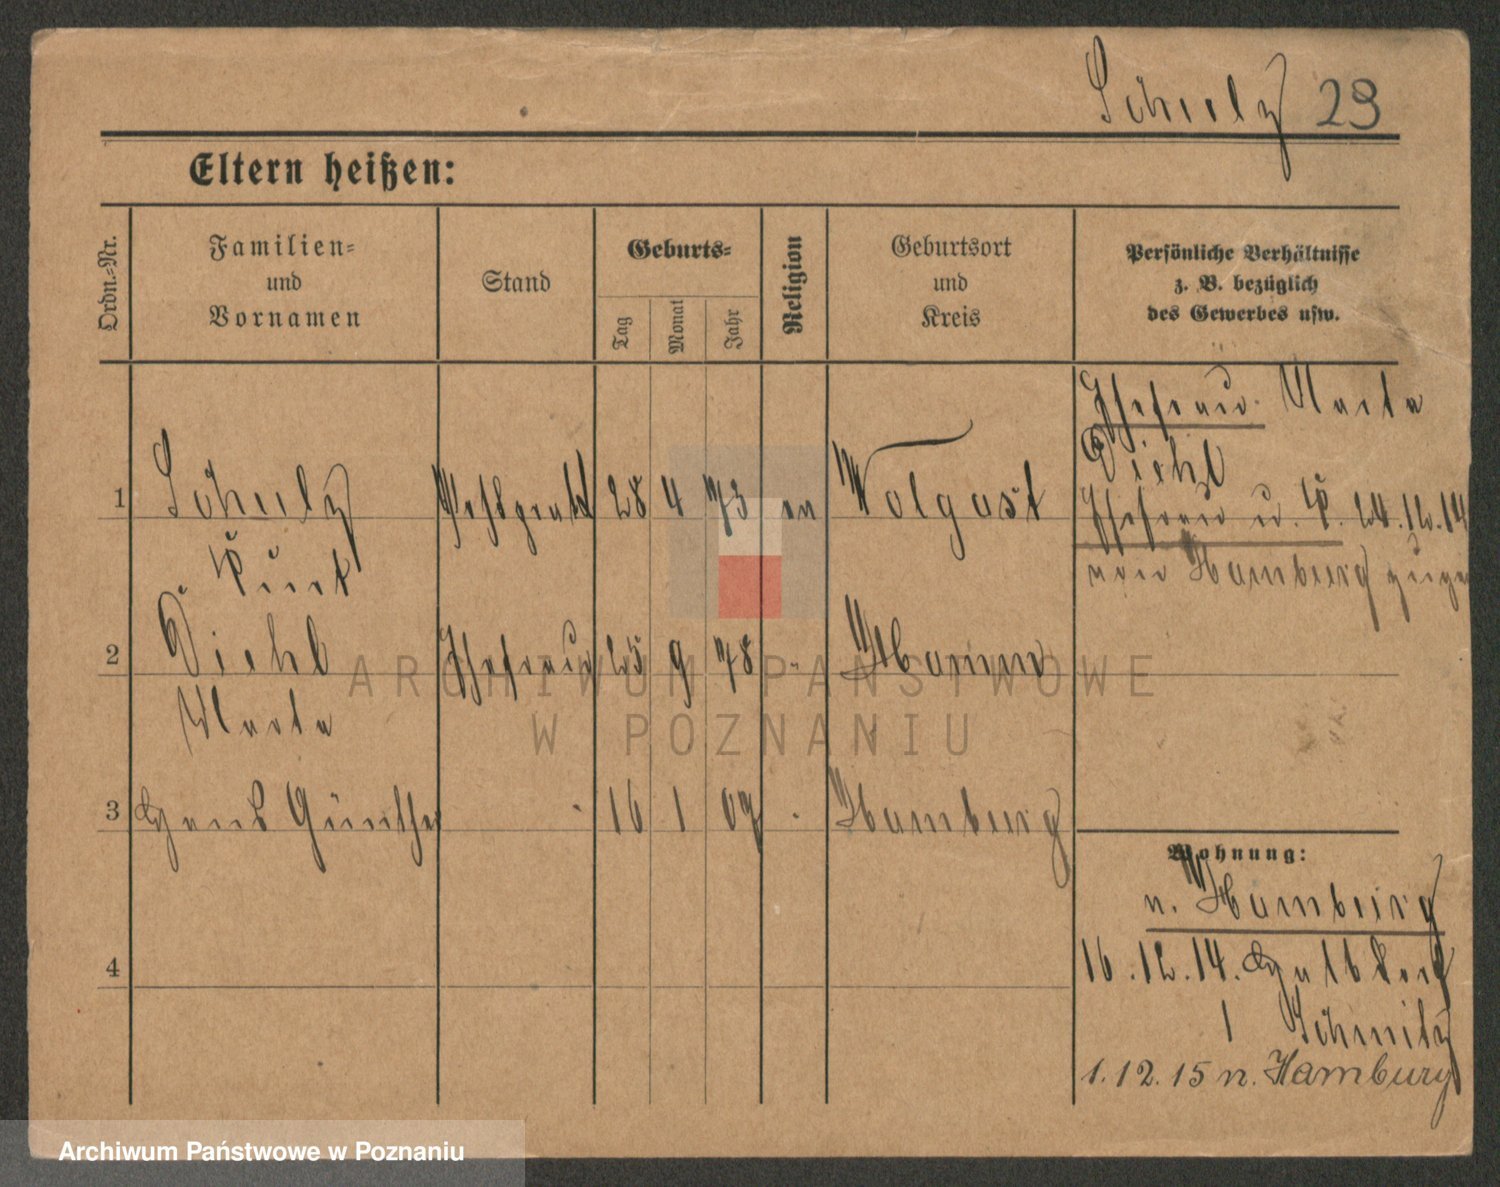 Schulz 23
Eltern heißen:
Ordn.=Nr.
Familien=
und
Vornamen
Stand
Geburts=
Tag
Monat
Jahr
Religion
Geburtsort
und
Kreis
Persönliche Verhältnisse
z. B. bezüglich
des Gewerbes usw.
Ehefrau Marta
Diehl
1 Schulz 28 4 73 ev Wolgast
Kurt
Ehefrau u. K. 24.12.14
von Hamburg
2 Diehl Ehefrau 25 9 78 " Hamm
Marta
3 Hans Günther 16 1 09 Hamburg
4
Wohnung:
n. Hamburg
16.12.14.
1 Schmitz
1.12.15 n. Hamburg
ARCHIWUM PAŃSTWOWE
W POZNANIU
Archiwum Państwowe w Poznaniu